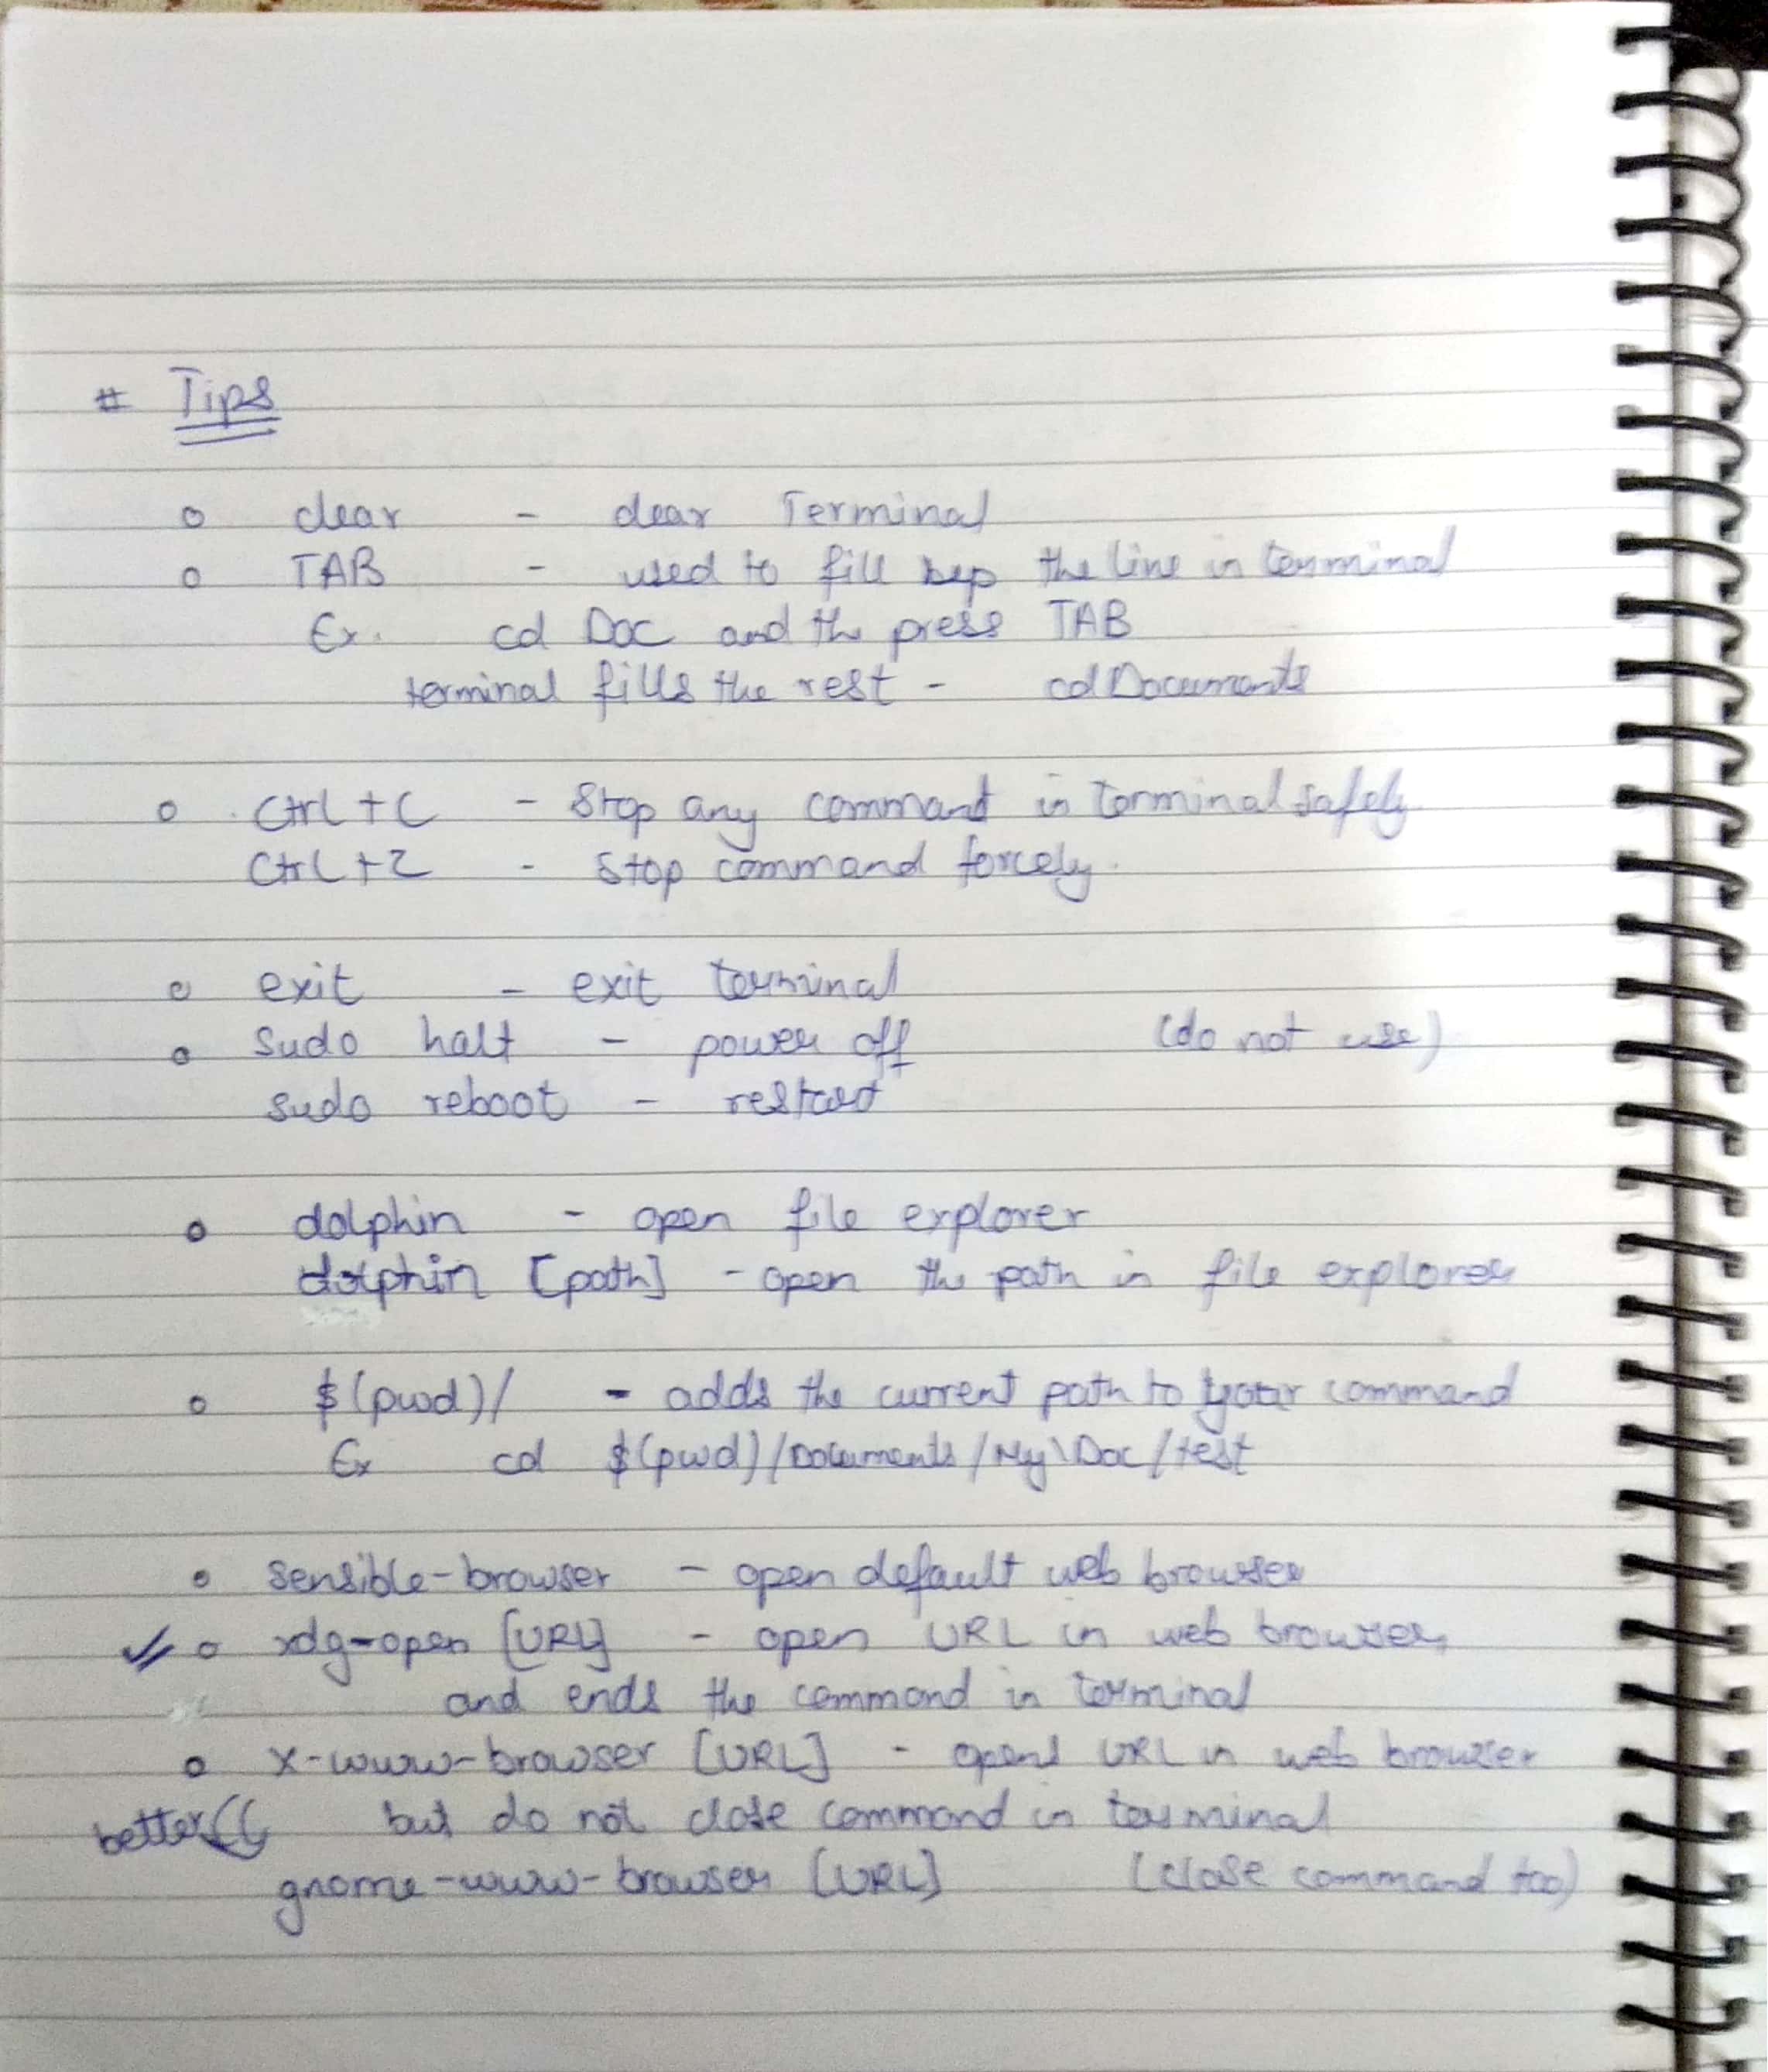 # Tips
o clear - clear Terminal
o TAB - used to fill up the line in terminal
Ex. cd Doc and the press TAB
terminal fills the rest - cd Documents
o Ctrl + C - Stop any command in terminal safely
Ctrl + Z - Stop command forcely.
o exit - exit terminal
o sudo halt - power off (do not use)
sudo reboot - restart
o dolphin - open file explorer
dolphin [path] - open the path in file explorer
o $(pwd)/ - adds the current path to your command
Ex cd $(pwd)/Documents/My\Doc/test
o sensible-browser - open default web browser
✓ o xdg-open [URL] - open URL in web browser,
and ends the command in terminal
o x-www-browser [URL] - opens URL in web browser
better but do not close command in terminal
gnome-www-browser [URL] (close command too)